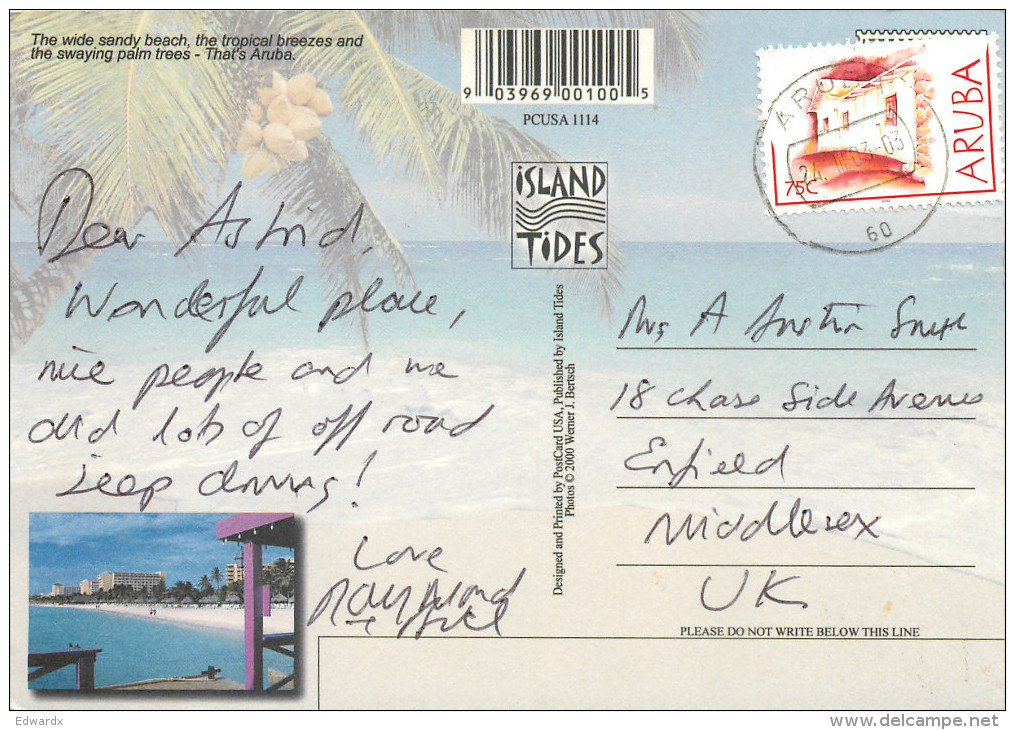 The wide sandy beach, the tropical breezes and
the swaying palm trees - That's Aruba.
9 03969 00100 5
PCUSA 1114
ISLAND
TIDES
ARUBA
75C
ARUBA
24. III 03-03
60
Dear Astrid,
Wonderful place,
nice people and we
did lots of off road
jeep driving!
Love
Raymond
Designed and Printed by PostCard USA, Published by Island Tides
Photos © 2000 Werner J. Bertsch
Mrs A Austin Smith
18 Chase Side Avenue
Enfield
Middlesex
UK
PLEASE DO NOT WRITE BELOW THIS LINE
Edwardx
www.delcampe.net